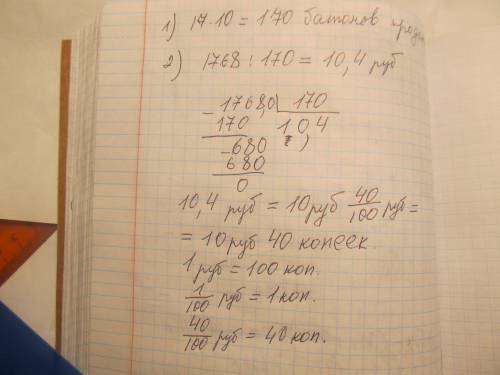 1) 17·10 = 170 батонов
2) 1768 : 170 = 10,4 руб
- 1768,0 | 170
170 10,4
- 680
680
0
10,4 руб = 10 руб 40/100 руб =
= 10 руб 40 копеек.
1 руб = 100 коп.
1/100 руб = 1 коп.
40/100 руб = 40 коп.